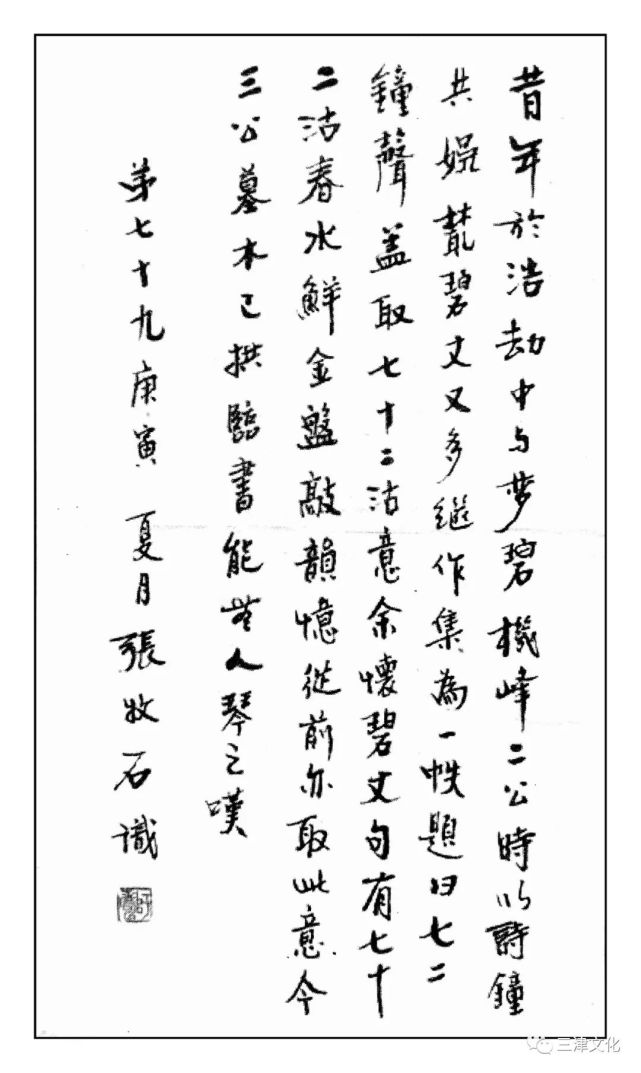 昔年於浩劫中与梦碧機峰二公時以詩鐘
共娱叢碧丈又多繼作集為一帙題曰七二
鐘聲盖取七十二沽意余懷碧丈句有七十
二沽春水鮮金盤敲韻憶從前亦取此意今
三公墓木已拱臨書能無人琴之嘆
第七十九庚寅夏月張牧石識
三津文化